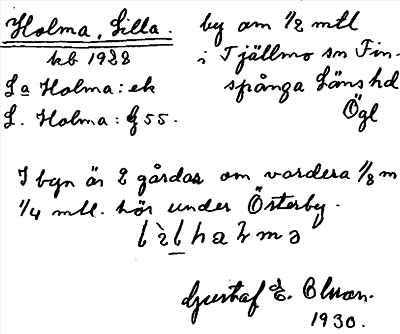 Holma, Lilla.
kb 1928
La Holma: ek
L. Holma: G 55.
by om 1/2 mtl
i Tjällmo sn Fin-
spånga Läns hd
Ögl
I byn är 2 gårdar om vardera 1/8 m
1/4 mtl. hör under Österby.
Gustaf E. Olsson.
1930.